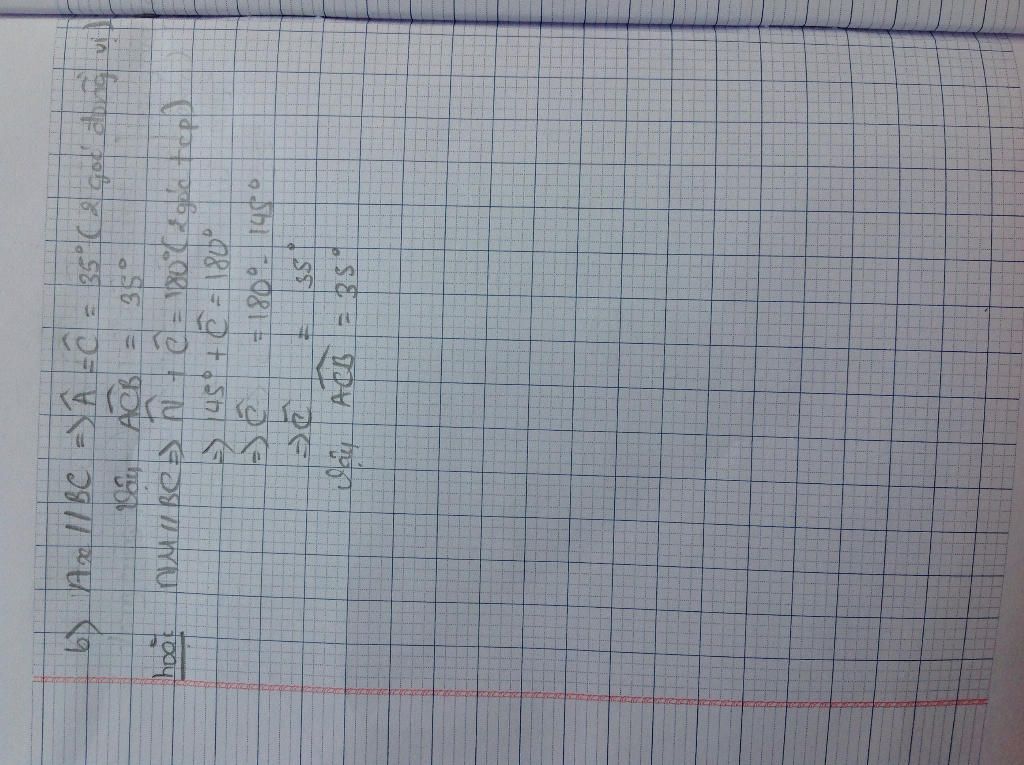 b) Ax // BC => Â = Ĉ = 35° (2 góc đồng vị)
Vậy ACB̂ = 35°
hoặc NM // BC => N̂ + Ĉ = 180° (2 góc tcp)
=> 145° + Ĉ = 180°
=> Ĉ = 180° - 145°
=> Ĉ = 35°
Vậy ACB̂ = 35°